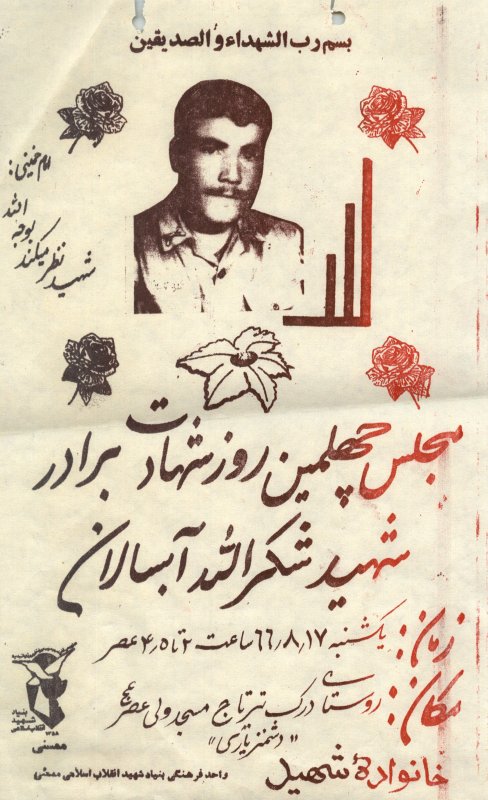 بسم رب الشهداء و الصدیقین
امام خمینی:
شهید نظر میکند بوجه الله
مجلس چهلمین روز شهادت برادر
شهید شکرالله آبسالان
زمان: یکشنبه ۶۶٫۸٫۱۷ ساعت ۲ تا ۴٫۵ عصر
مکان: روستای درک تیرتاج مسجد ولی عصر عج
«دشمنزیاری»
خانوادهٔ شهید
واحد فرهنگی بنیاد شهید انقلاب اسلامی ممسنی
بنیاد
شهید
انقلاب اسلامی
۱۳۵۸
ممسنی